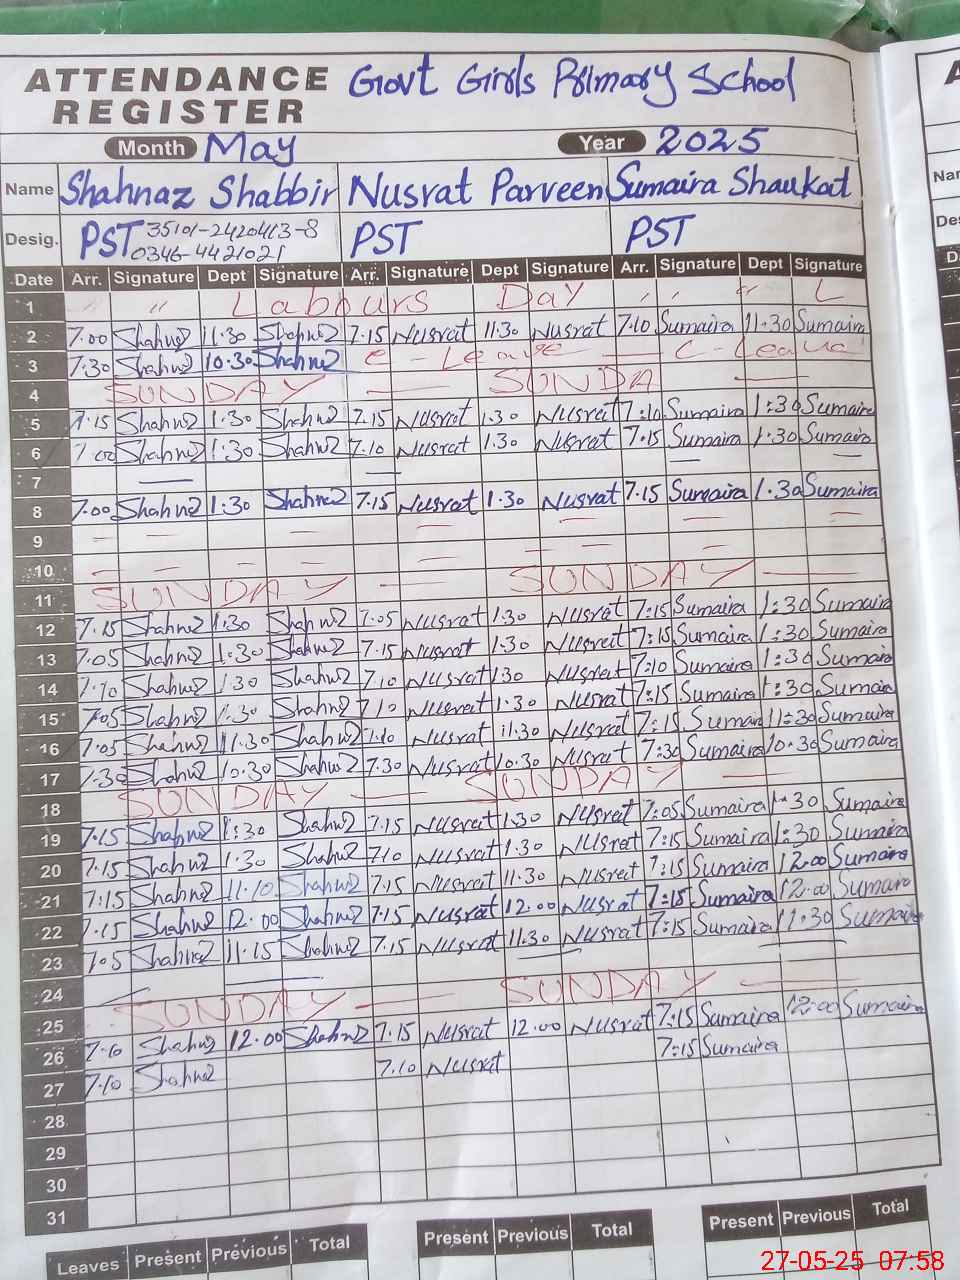 ATTENDANCE REGISTER Govt Girls Primary School
Month May Year 2025
Name Shahnaz Shabbir Nusrat Parveen Sumaira Shaukat
Desig. PST 35101-2420413-8 0346-4421021 PST PST
Date Arr. Signature Dept Signature Arr. Signature Dept Signature Arr. Signature Dept Signature
1 〃 Labours Day 〃 〃 〃 L
2 7.00 Shahnaz 11:30 Shahnaz 7.15 Nusrat 11.30 Nusrat 7.10 Sumaira 11.30 Sumaira
3 7:30 Shahnaz 10.30 Shahnaz C - Leave C-Leave
4 SUNDAY SUNDA
5 7.15 Shahnaz 1:30 Shahnaz 7.15 Nusrat 1.30 Nusrat 7:10 Sumaira 1:30 Sumaira
6 7.00 Shahnaz 1:30 Shahnaz 7.10 Nusrat 1.30 Nusrat 7:15 Sumaira 1:30 Sumaira
7
8 7.00 Shahnaz 1.30 Shahnaz 7.15 Nusrat 1.30 Nusrat 7.15 Sumaira 1.30 Sumaira
9
10
11 SUNDAY SUNDAY
12 7.15 Shahnaz 1:30 Shahnaz 7.05 Nusrat 1.30 Nusrat 7:15 Sumaira 1:30 Sumaira
13 7.05 Shahnaz 1:30 Shahnaz 7.15 Nusrat 1.30 Nusrat 7:15 Sumaira 1:30 Sumaira
14 7.10 Shahnaz 1:30 Shahnaz 7.10 Nusrat 1.30 Nusrat 7:10 Sumaira 1:30 Sumaira
15 7.05 Shahnaz 1:30 Shahnaz 7.10 Nusrat 1.30 Nusrat 7:15 Sumaira 1:30 Sumaira
16 7.05 Shahnaz 11.30 Shahnaz 7.10 Nusrat 11.30 Nusrat 7:15 Sumaira 11:30 Sumaira
17 7.30 Shahnaz 10.30 Shahnaz 7.30 Nusrat 10.30 Nusrat 7:30 Sumaira 10.30 Sumaira
18 SUNDAY SUNDAY
19 7.15 Shahnaz 1:30 Shahnaz 7.15 Nusrat 1.30 Nusrat 7:05 Sumaira 1:30 Sumaira
20 7.15 Shahnaz 1.30 Shahnaz 7.10 Nusrat 1.30 Nusrat 7:15 Sumaira 1:30 Sumaira
21 7:15 Shahnaz 11.10 Shahnaz 7.15 Nusrat 11.30 Nusrat 7:15 Sumaira 12.00 Sumaira
22 7.15 Shahnaz 12.00 Shahnaz 7.15 Nusrat 12.00 Nusrat 7:15 Sumaira 12.00 Sumaira
23 7.05 Shahnaz 11.15 Shahnaz 7.15 Nusrat 11.30 Nusrat 7:15 Sumaira 11.30 Sumaira
24
25 SUNDAY SUNDAY
26 7.10 Shahnaz 12.00 Shahnaz 7.15 Nusrat 12.00 Nusrat 7:15 Sumaira 12:00 Sumaira
27 7.10 Shahnaz 7.10 Nusrat 7:15 Sumaira
28
29
30
31
Leaves Present Previous Total Present Previous Total Present Previous Total
27-05-25 07:58